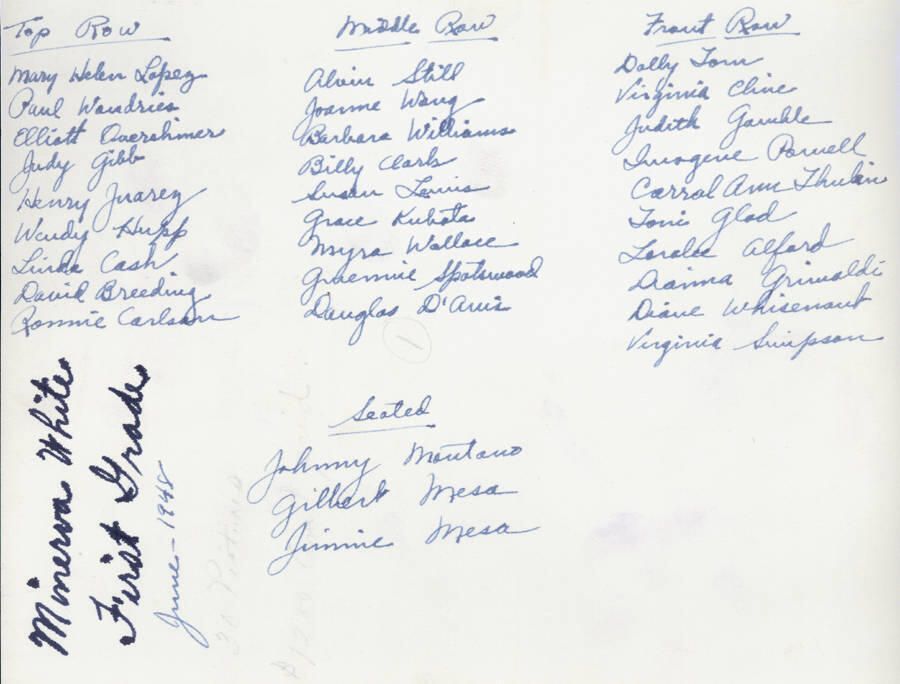 Top Row
Mary Helen Lopez
Paul Wandries
Elliott Overshimer
Judy Gibb
Henry Juarez
Wendy Hupp
Linda Cash
David Breeding
Ronnie Carlson
Middle Row
Alvin Still
Joanne Wang
Barbara Williams
Billy Clark
Susan Lewis
Grace Kubota
Myra Wallace
Graennie Spotswood
Douglas D'Amis
1
Front Row
Dolly Tom
Virginia Cline
Judith Gamble
Imogene Powell
Carrol Ann Thulin
Toni Glad
Loralee Alford
Dianna Grimaldi
Diane Whisenant
Virginia Simpson
Seated
Johnny Montano
Gilbert Mesa
Jimmie Mesa
Minerva White
First Grade
June-1948
30 Pictures